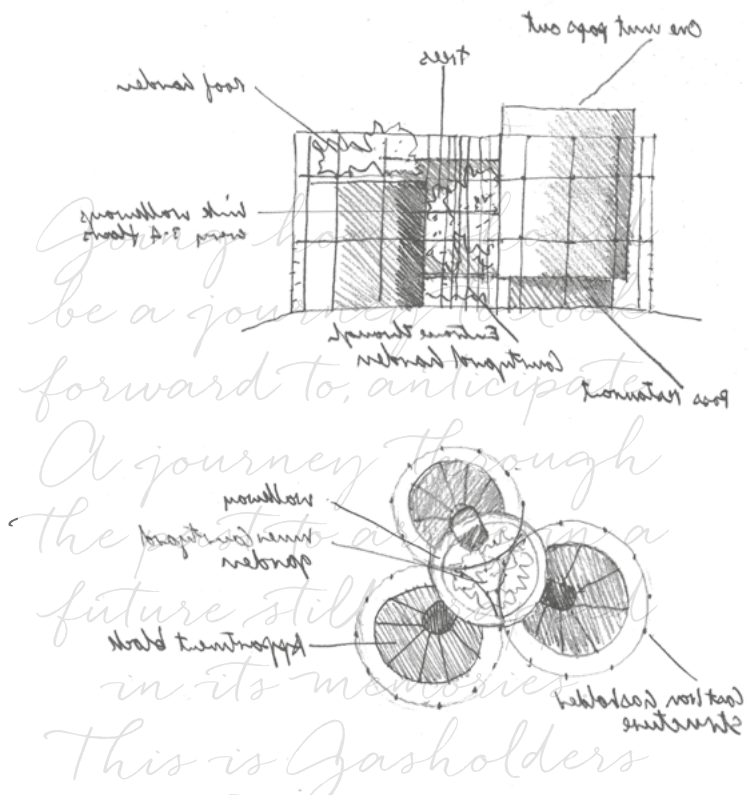 One unit pops out
trees
roof garden
link walkways
every 3-4 floors
Entrance through
Courtyard Garden
Poss restaurant
walkway
inner Courtyard
garden
Appartment block
Cast Iron Gasholder
structure
Going home should
be a journey to look
forward to, anticipate.
A journey through
the past to a
future still
in its memories.
This is Gasholders